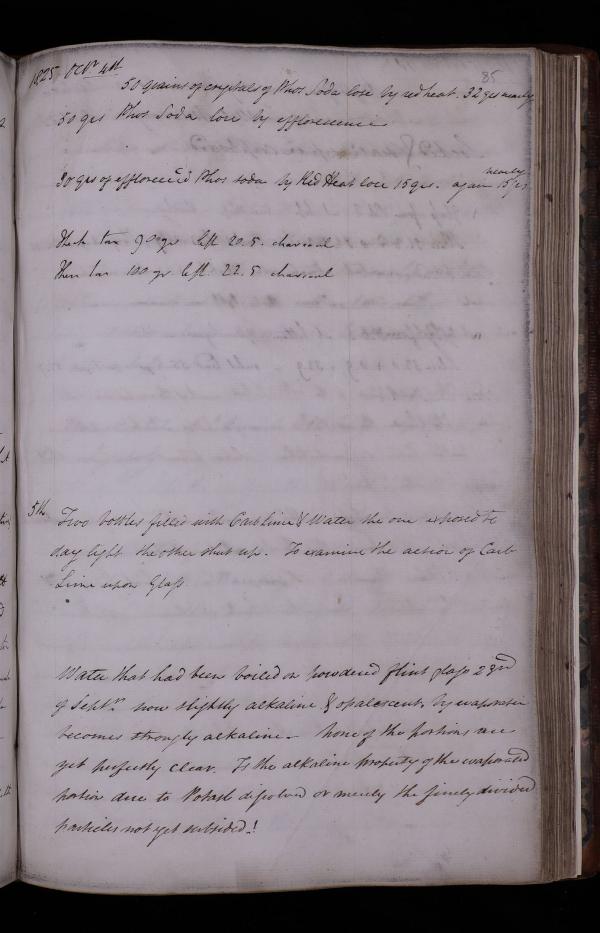 85
1825 Octr 4th
50 grains of crystals of Phos Soda lose by red heat. 32 grs nearly
50 grs Phos Soda lose by efflorescence
30 grs of effloresced Phos soda by Red Heat lose 15 grs. again 15 grs nearly
Thick tar 90 gr left 20.5. charcoal
Thin tar 100 gr left 22.5 charcoal
5th
Two bottles filled with Carb lime & Water the one exposed to
day light the other shut up. To examine the action of Carb
Lime upon Glass
Water that had been boiled on powdered flint glass 23rd
of Septr now slightly alkaline & opalescent. by evaporation
becomes strongly alkaline - None of the portions are
yet perfectly clear. Is the alkaline property of the evaporated
portion due to Potash dissolved or merely the finely divided
particles not yet subsided!